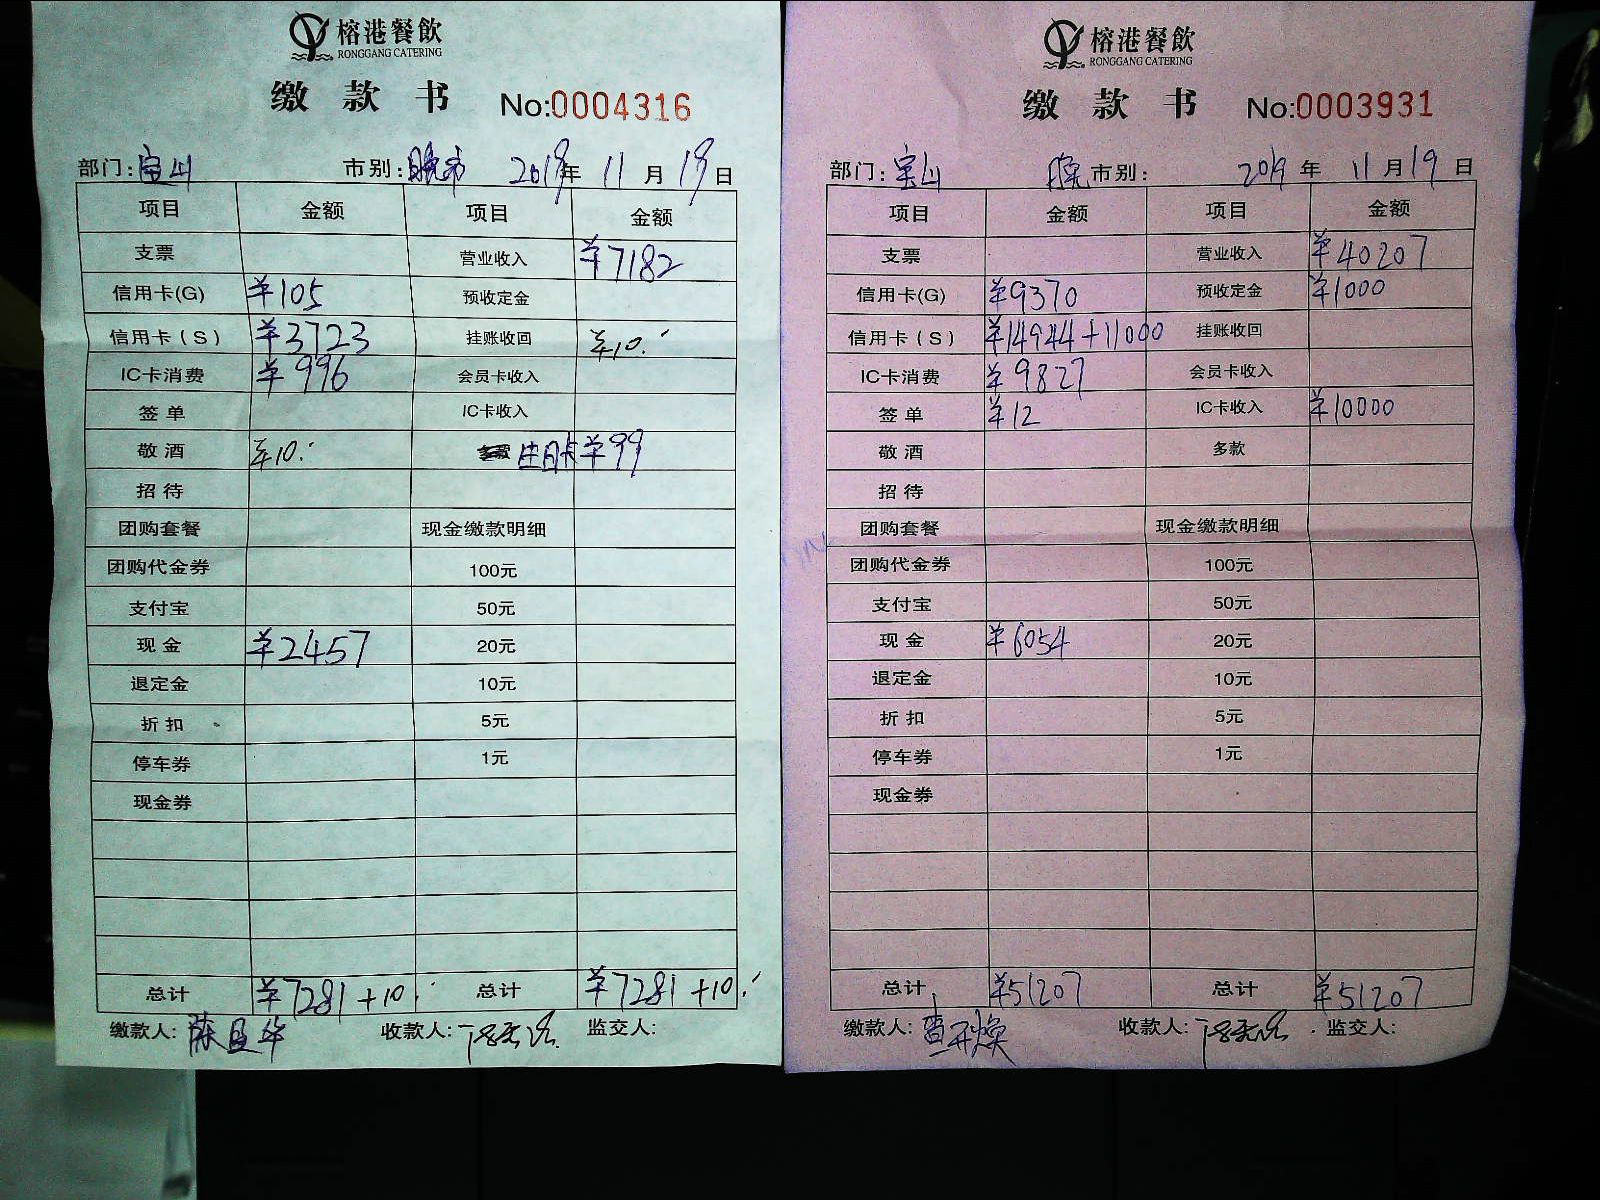 榕港餐飲
RONGGANG CATERING
缴款书 No:0004316
部门:宝山 市别:晚市 2019年 11月 19日
项目 金额 项目 金额
支票 营业收入 ¥7182
信用卡(G) ¥105 预收定金
信用卡(S) ¥3723 挂账收回 ¥10.
IC卡消费 ¥996 会员卡收入
签单 IC卡收入
敬酒 ¥10. 生日卡 ¥99
招待
团购套餐 现金缴款明细
团购代金券 100元
支付宝 50元
现金 ¥2457 20元
退定金 10元
折扣 5元
停车券 1元
现金券
总计 ¥7281+10. 总计 ¥7281+10.
缴款人: 收款人: 监交人:
榕港餐飲
RONGGANG CATERING
缴款书 No:0003931
部门:宝山 市别: 2019年 11月19日
项目 金额 项目 金额
支票 营业收入 ¥40207
信用卡(G) ¥9370 预收定金 ¥1000
信用卡(S) ¥14944+11000 挂账收回
IC卡消费 ¥9827 会员卡收入
签单 ¥12 IC卡收入 ¥10000
敬酒 多款
招待
团购套餐 现金缴款明细
团购代金券 100元
支付宝 50元
现金 ¥6054 20元
退定金 10元
折扣 5元
停车券 1元
现金券
总计 ¥51207 总计 ¥51207
缴款人: 收款人: 监交人: